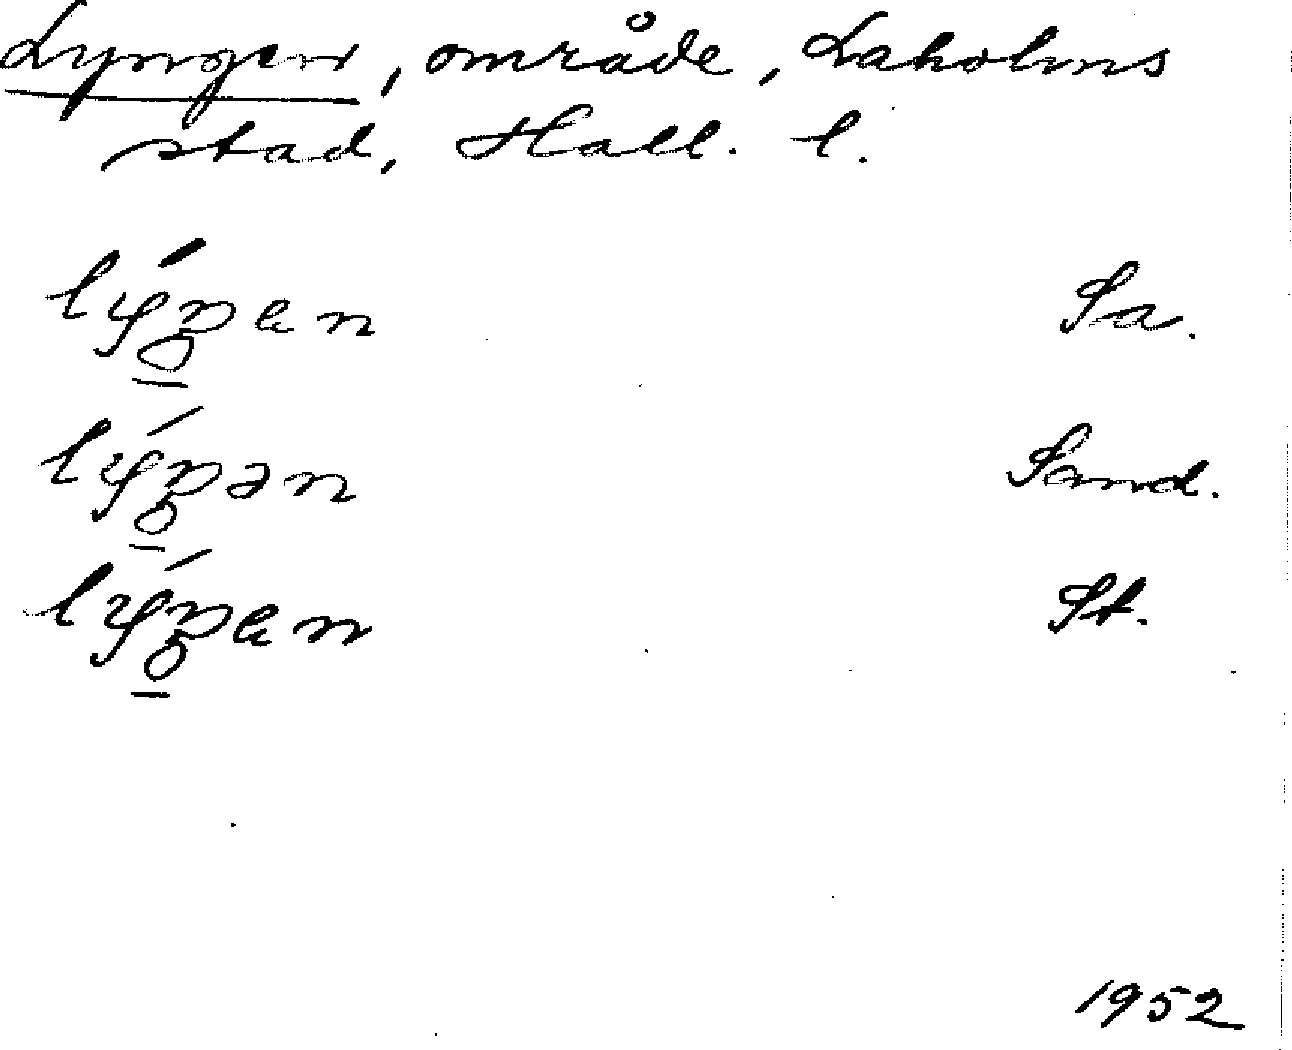 Lyngen, område, Laholms
stad, Hall. l.
lýŋen Sa.
lýŋən Sand.
lýŋen St.
1952